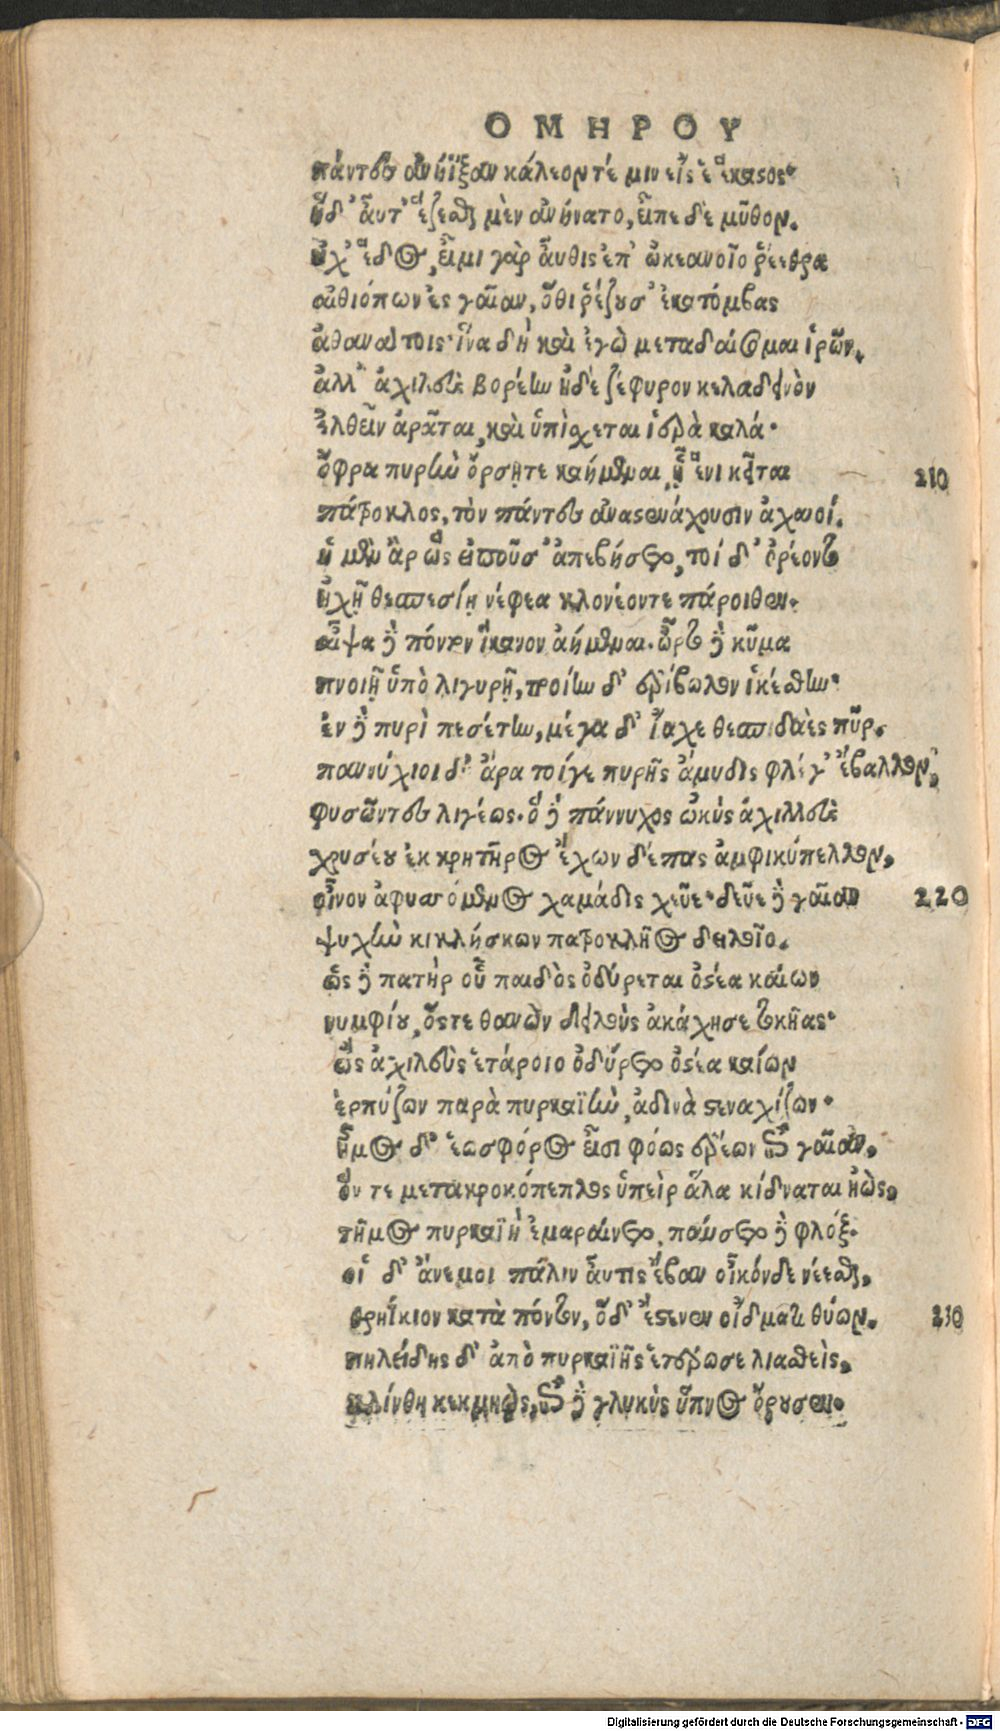 ΟΜΗΡΟΥ
πάντες ἀνήϊξαν κάλεόν τέ μιν εἰς ἓ ἕκαστος·
ἡ δ' αὖτ' ἕζεσθαι μὲν ἀνήνατο, εἶπε δὲ μῦθον.
οὐχ' ἕδος, εἶμι γὰρ αὖθις ἐπ' ὠκεανοῖο ῥέεθρα
αἰθιόπων ἐς γαῖαν, ὅθι ῥέζουσ' ἑκατόμβας
ἀθανάτοις· ἵνα δὴ καὶ ἐγὼ μεταδαίσομαι ἱρῶν.
ἀλλ' ἀχιλεὺς βορέην ἠδὲ ζέφυρον κελαδεινὸν
ἐλθεῖν ἀρᾶται, καὶ ὑπίσχεται ἱερὰ καλά·
ὄφρα πυρὴν ὄρσητε καήμεναι, ᾗ ἔνι κεῖται 210
πάτροκλος, τὸν πάντες ἀναστενάχουσιν ἀχαιοί.
ἡ μὲν ἂρ ὣς εἰποῦσ' ἀπεβήσετο, τοὶ δ' ὀρέοντο
ἠχῇ θεσπεσίῃ νέφεα κλονέοντε πάροιθεν.
αἶψα δὲ πόντον ἵκανον ἀήμεναι. ὦρτο δὲ κῦμα
πνοιῇ ὑπὸ λιγυρῇ, τροίην δ' ἐρίβωλον ἱκέσθην·
ἐν δὲ πυρὶ πεσέτην, μέγα δ' ἴαχε θεσπιδαὲς πῦρ.
παννύχιοι δ' ἄρα τοίγε πυρῆς ἄμυδις φλόγ' ἔβαλλον,
φυσῶντες λιγέως. ὁ δὲ πάννυχος ὠκὺς ἀχιλλεὺς
χρυσέου ἐκ κρητῆρος ἔχων δέπας ἀμφικύπελλον,
οἶνον ἀφυσσόμενος χαμάδις χεῦε· δεῦε δὲ γαῖαν 220
ψυχὴν κικλήσκων πατροκλῆος δειλοῖο.
ὡς δὲ πατὴρ οὗ παιδὸς ὀδύρεται ὀστέα καίων
νυμφίου, ὅστε θανὼν δειλοὺς ἀκάχησε τοκῆας·
ὣς ἀχιλεὺς ἑτάροιο ὀδύρετο ὀστέα καίων
ἑρπύζων παρὰ πυρκαϊὴν, ἀδινὰ στεναχίζων·
ἦμος δ' ἑωσφόρος εἶσι φόως ἐρέων ἐπὶ γαῖαν,
ὅν τε μετα κροκόπεπλος ὑπεὶρ ἅλα κίδναται ἠὼς,
τῆμος πυρκαϊὴ ἐμαραίνετο, παύσετο δὲ φλόξ.
οἱ δ' ἄνεμοι πάλιν αὖτις ἔβαν οἶκόνδε νέεσθαι,
θρηΐκιον κατὰ πόντον, ὅδ' ἔστενεν οἴδματι θύων. 230
πηλείδης δ' ἀπὸ πυρκαϊῆς ἑτέρωσε λιασθεὶς,
κλίνθη κεκμηὼς, ἐπὶ δὲ γλυκὺς ὕπνος ὄρουσεν.
Digitalisierung gefördert durch die Deutsche Forschungsgemeinschaft - DFG